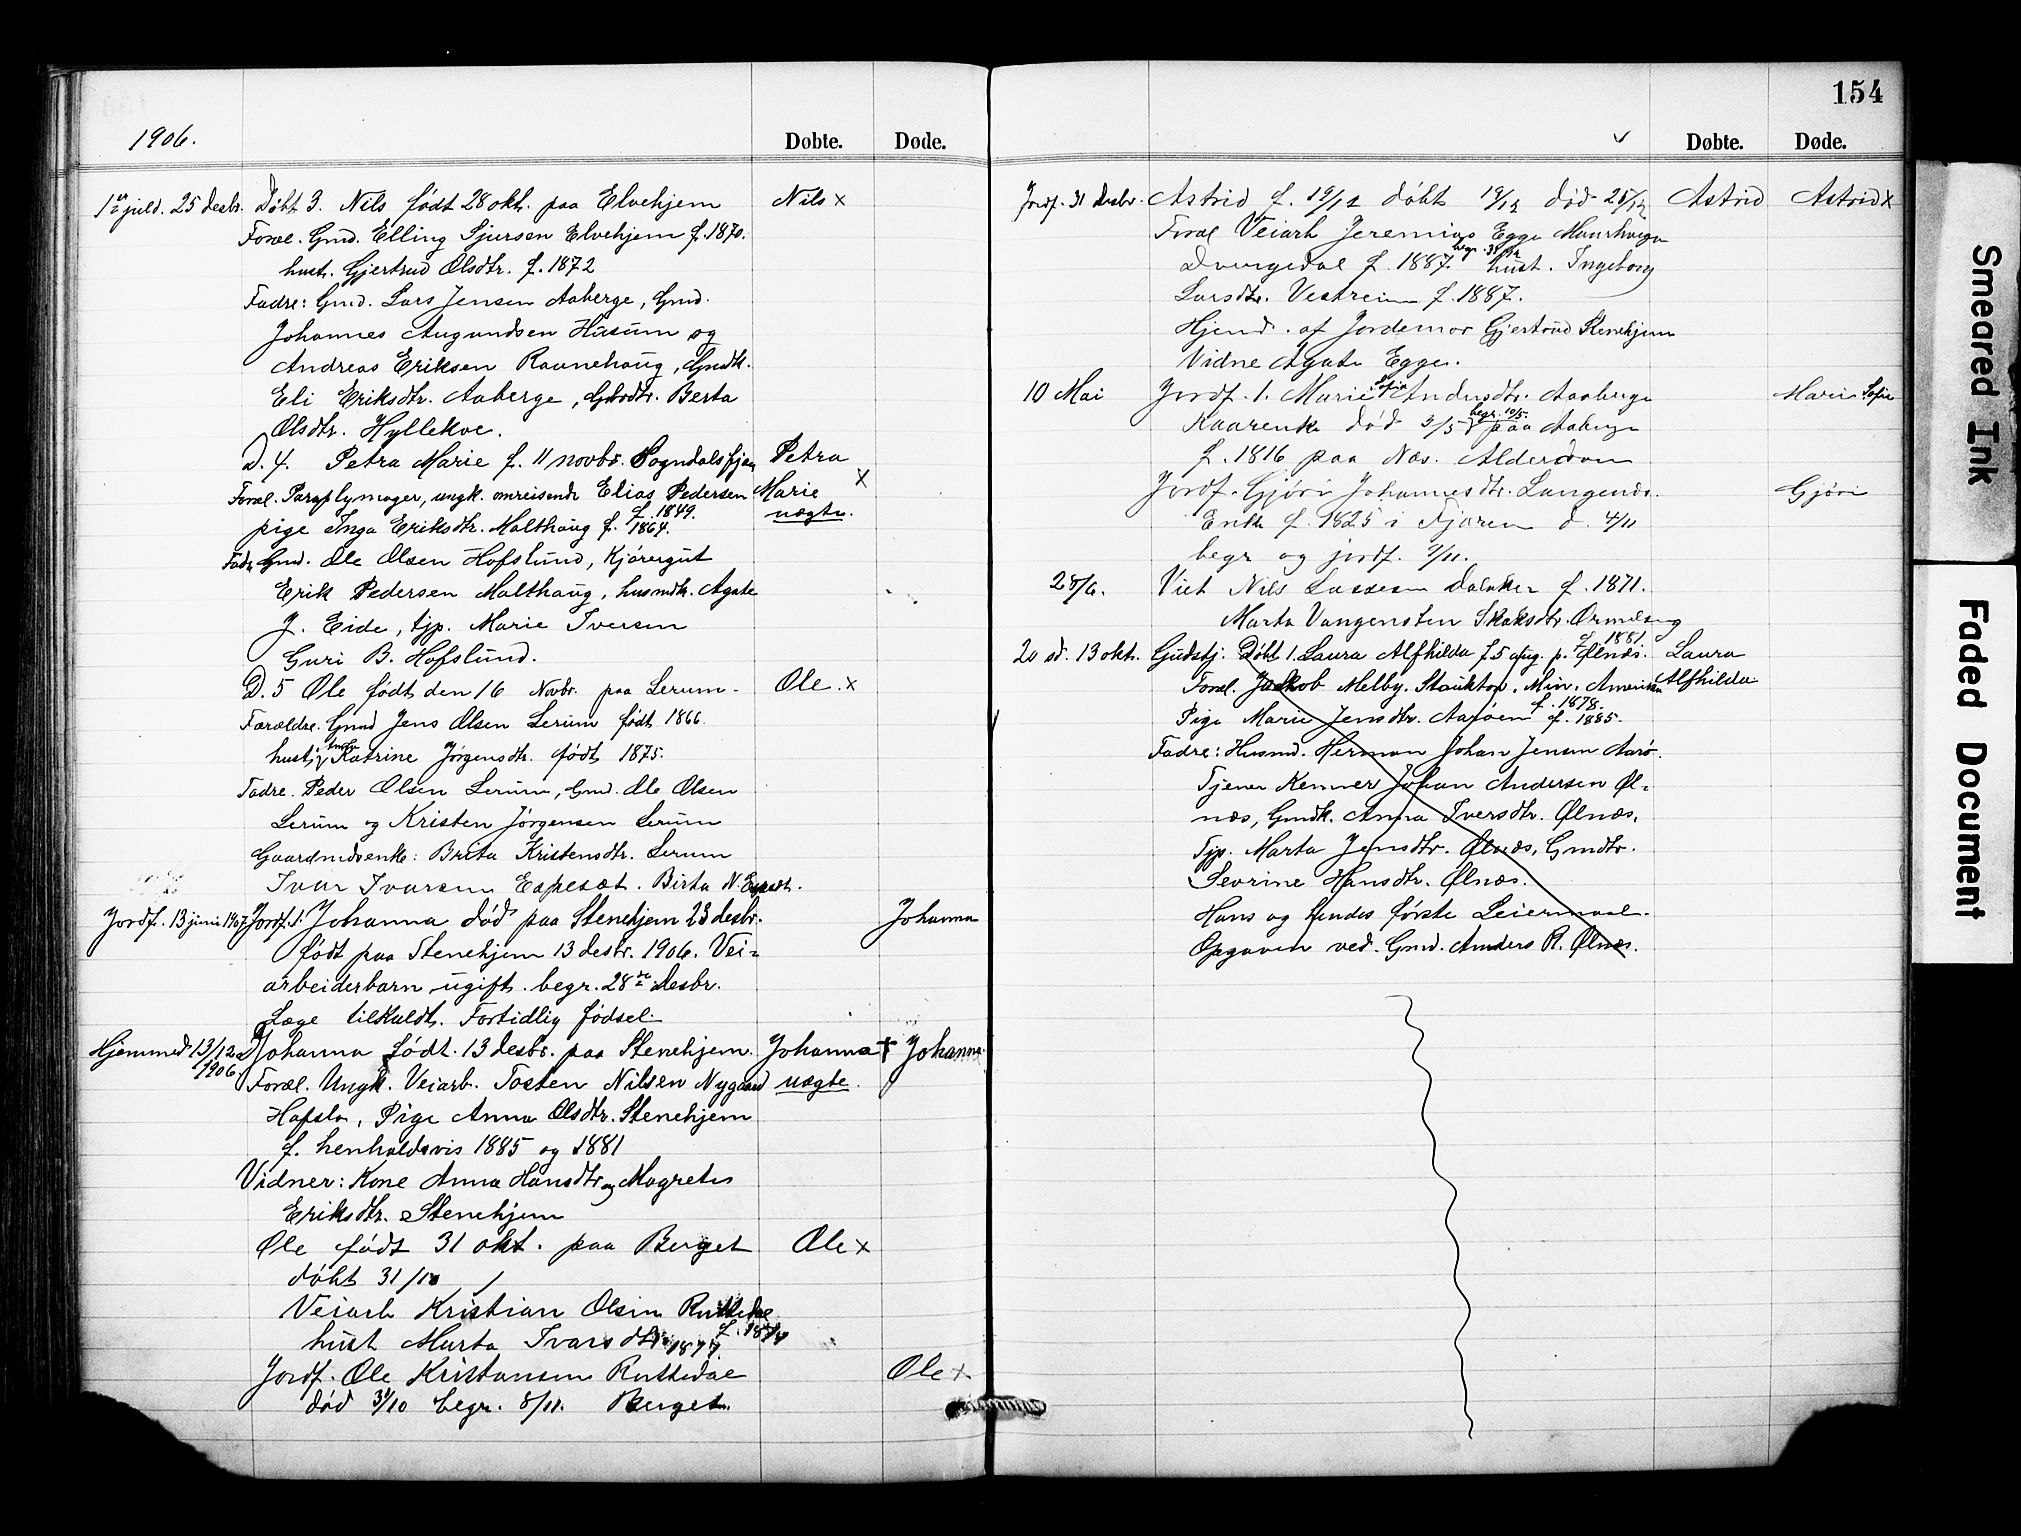 1906.
Døbte. Døde.
1ste juld. 25 desbr. Døbt 3. Nils født 28 okt. paa Elvehjem Nils x
Foræl. Gmd. Elling Sjursen Elvehjem f. 1870.
hust. Gjertrud Olsdtr. f. 1872
Fadre: Gmd. Lars Jensen Aaberge, Gmd.
Johannes Augundsen Husum og
Andreas Eriksen Ravnehaug, Gmdk.
Eli Eriksdtr. Aaberge, Grdtr. Berta
Olsdtr. Hyllekve.
D. 4. Petra Marie f. 11 novbr. Sogndalsfjæren Petra
Foræl. Paraplymager, ungk. omreisende Elias Pedersen Marie x
f. 1849. uægte.
pige Inga Eriksdtr. Malthaug f. 1864.
Fadre Gmd. Ole Olsen Hofslund, Kjøregut
Erik Pedersen Malthaug, husmdk. Agate
J. Eide, tjp. Marie Iversen
Guri B. Hofslund.
D. 5 Ole født den 16 Novbr. paa Lerum. Ole. x
Forældre. Gmd Jens Olsen Lerum født 1866.
hust. Katrine Jørgensdtr. født 1875.
Fadre. Peder Olsen Lerum, Gmd. Ole Olsen
Lerum og Kristen Jørgensen Lerum
Gaardmdsenke: Brita Kristensdtr. Lerum
Ivar Ivarsen Eapesæt. Birta N. Eapesæt.
Jordf. 13 juni 1907 Jordf. 1. Johanna død paa Stenehjem 23 desbr. Johanna
født paa Stenehjem 13 desbr. 1906. Vei=
arbeiderbarn ugift. begr. 28de desbr.
Læge tilkaldt. Fortidlig fødsel.
Hjemmed 13/12 1906. Johanna født 13 desbr. paa Stenehjem. Johanna † Johanna
Foræl. Ungk. Veiarb. Tosten Nilsen Nygaard uægte.
Hafslo, Pige Anna Olsdtr. Stenehjem
f. henholdsvis 1885 og 1881
Vidner: Kone Anna Hansdtr og Magrete
Eriksdtr. Stenehjem
Ole født 31 okt. paa Berget Ole x
døbt 31/10
Veiarb Kristian Olsen Ruttedal
f. 1874
hust Marta Ivarsdtr. 1877.
Jordf. Ole Kristiansen Ruttedal Ole x
død 31/10 begr. 8/11. Berget.
154
Døbte. Døde.
Jordf. 31 desbr. Astrid f. 19/12 døbt 19/12 død 25/12 Astrid Astrid x
Foræl Veiarb Jeremias Egge
begr. 31/12
Dvergedal f. 1887. hust. Ingeborg
Larsdtr. Vestreim f. 1887.
Hjemd. af Jordemor Gjertrud Stenehjem
Vidne Agate Egge.
10 Mai Jordf. 1. Marie Sofie Andersdtr. Aaberge Marie Sofie
Kaarenke død 3/5 begr. 10/5. paa Aaberge
f. 1816 paa Næs. Alderdom
Jordf. Gjøri Johannesdtr. Langenæs. Gjøri
Enke f. 1825 i Fjæren d. 4/11
begr og jordf. 9/11.
28/6. Viet Nils Lassesen Dalaker f. 1871.
Marta Vangensten Skaksdtr. Ormelseng
f. 1881.
20 sd. 13 okt. Gudstj. Døbt 1. Laura Alfhilda f. 5 aug. p. Ølnæs. Laura
Foræl. Jakob Melby. Stauktop. Min. Amerika Alfhilda
f. 1878.
Pige Marie Jensdtr. Aarøen f. 1885.
Fadre: Husmd. Herman Johan Jensen Aarø.
Tjener Kenner Johan Andersen Øl=
næs, Gmdk. Anna Iversdtr. Ølnæs.
Tjp. Marta Jensdtr. Ølnæs, Gmdtr.
Sevrine Hansdtr. Ølnæs.
Hans og hendes første Leiermaal.
Opgaven ved. Gmd. Anders R. Ølnæs.
Smeared Ink
Faded Document